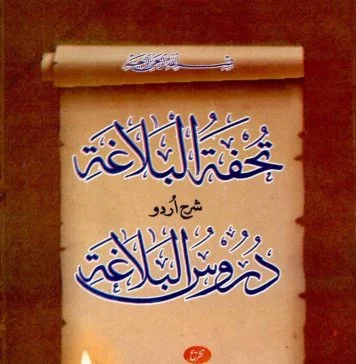 بسم الله الرحمن الرحيم
تُحْفَةُ الْبَلَاغَة
شرح اُردو
دُرُوسُ الْبَلَاغَة